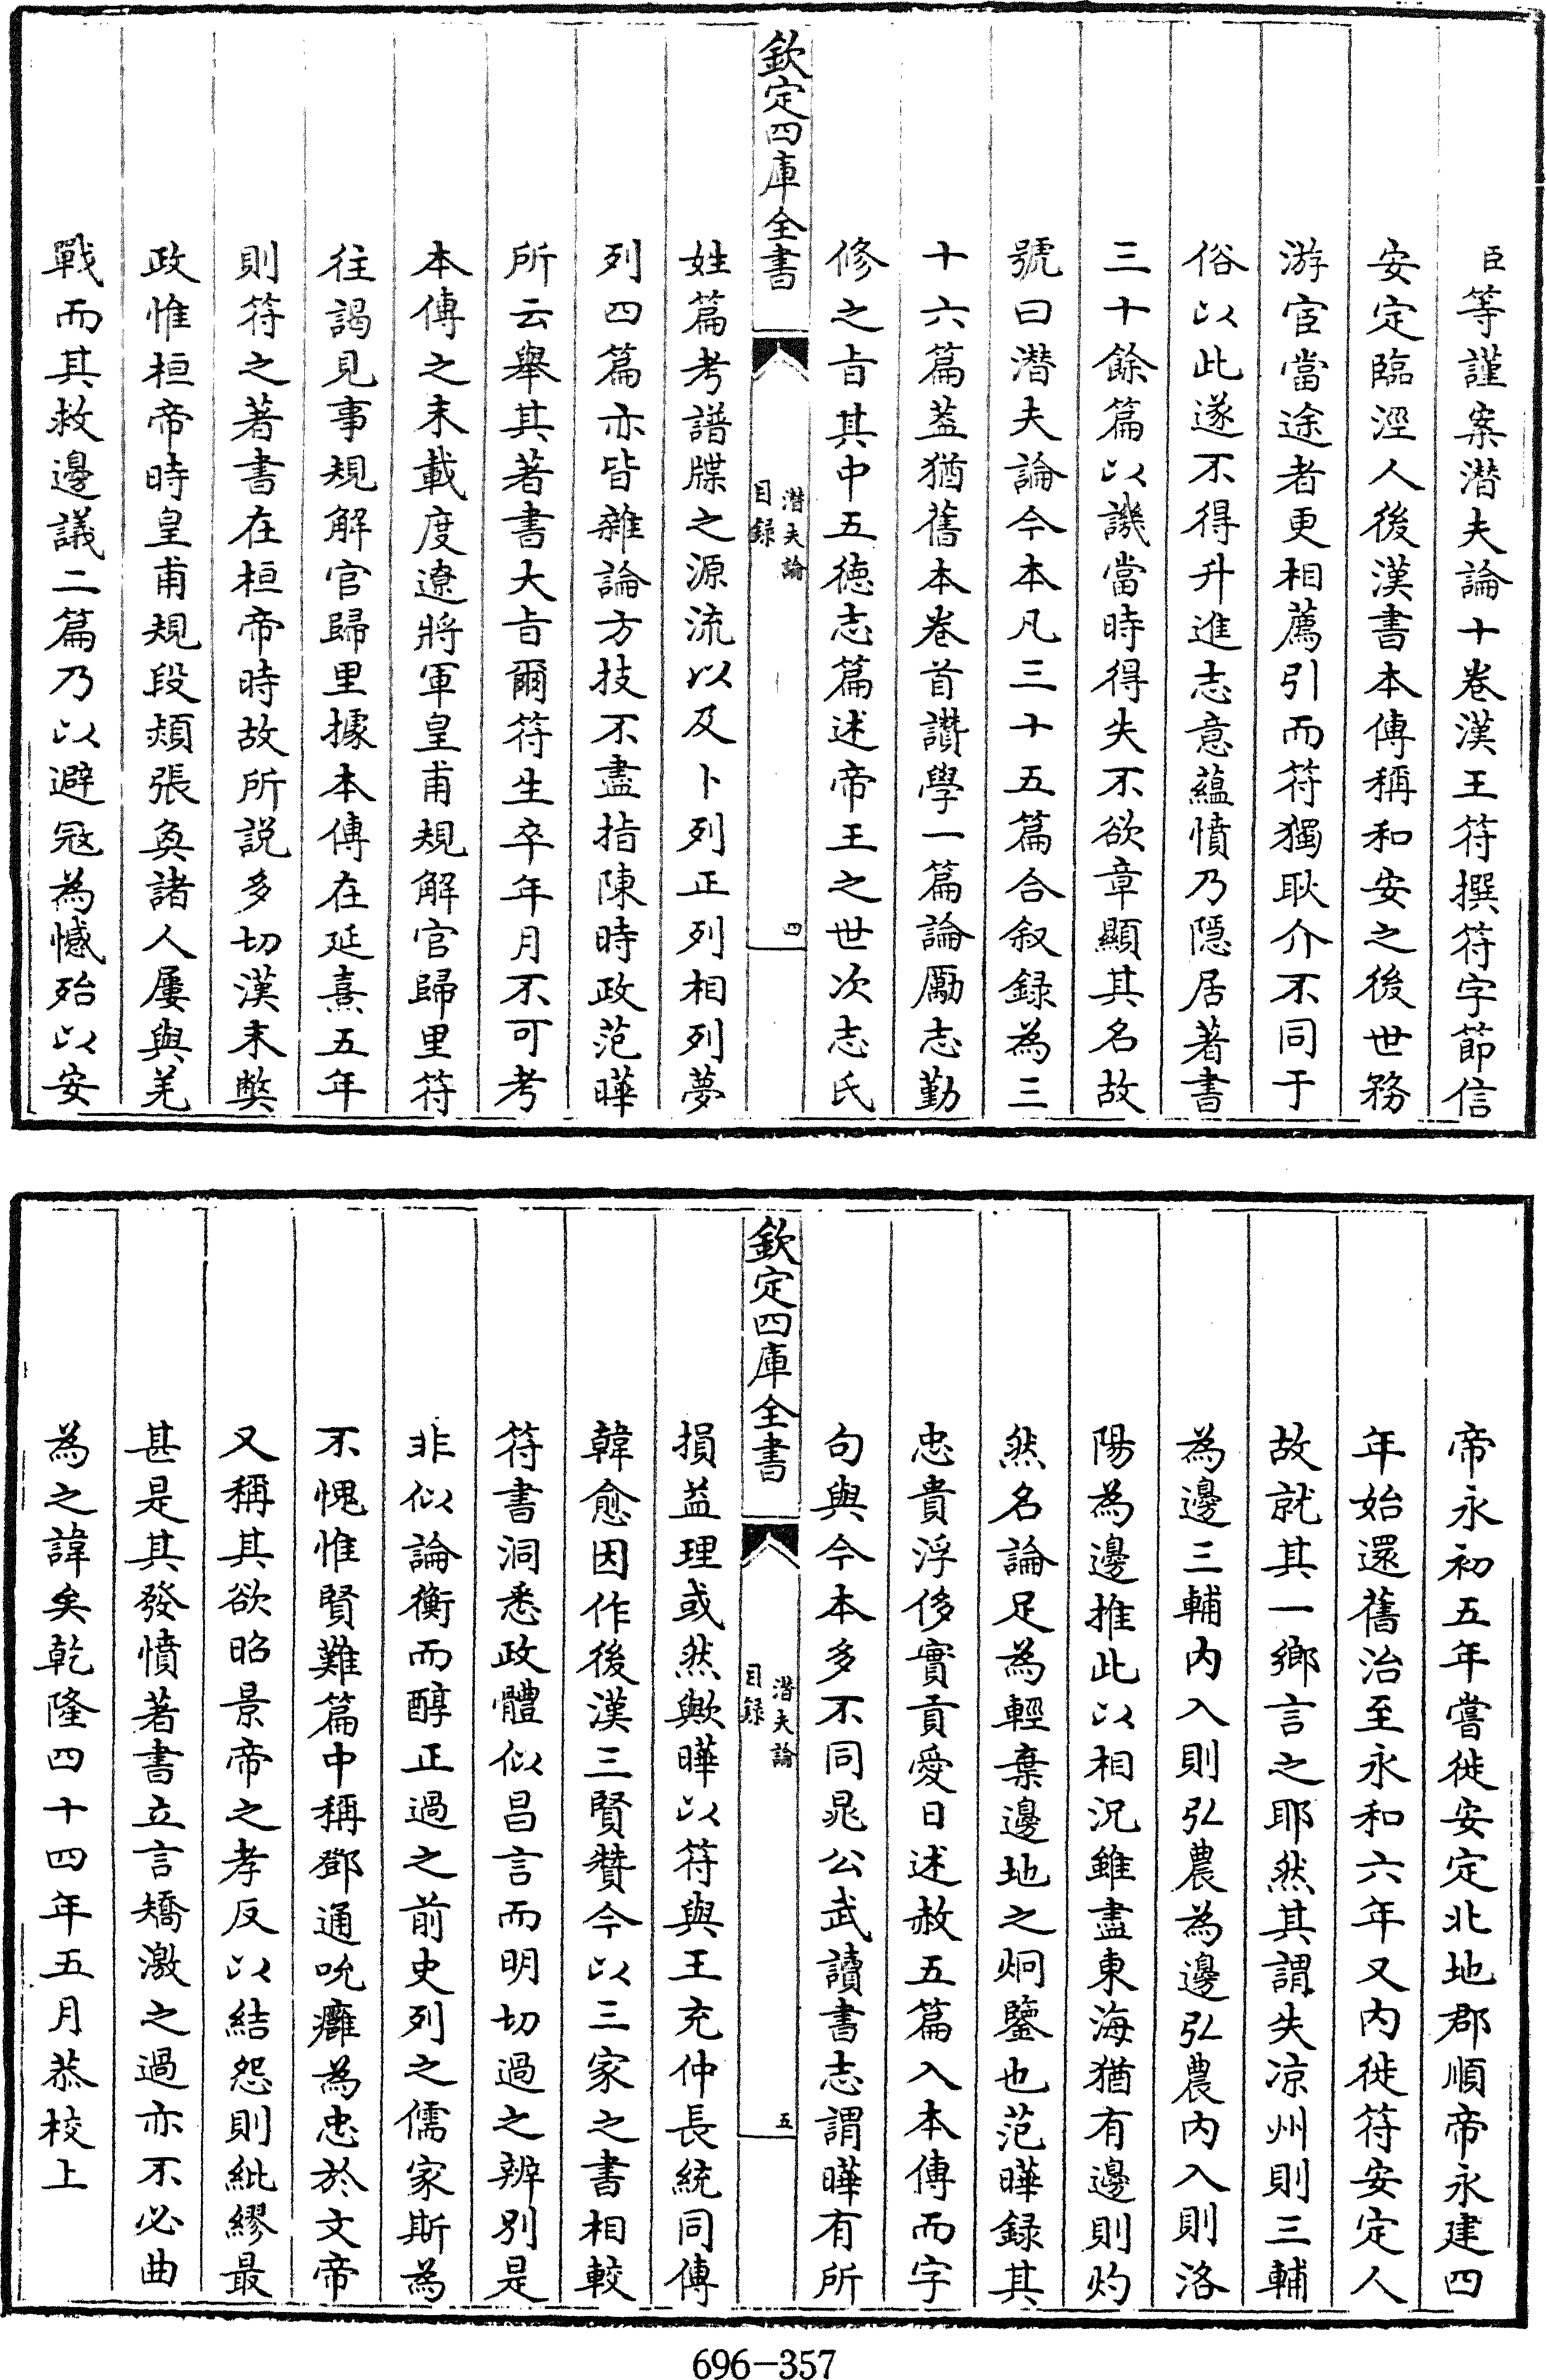 臣等謹案潜夫論十卷漢王符撰符字節信
安定臨涇人後漢書本傳稱和安之後世務
游宦當途者更相薦引而符獨耿介不同于
俗以此遂不得升進志意蘊憤乃隠居著書
三十餘篇以譏當時得失不欲章顯其名故
號曰潜夫論今本凡三十五篇合叙録為三
十六篇葢猶舊本卷首讚學一篇論勵志勤
修之㫖其中五徳志篇述帝王之世次志氏
欽定四庫全書
潜夫論
目録
四
姓篇考譜牒之源流以及卜列正列相列夢
列四篇亦皆雜論方技不盡指陳時政范曄
所云舉其著書大㫖爾符生卒年月不可考
本傳之末載度遼將軍皇甫規解官歸里符
往謁見事規解官歸里據本傳在延熹五年
則符之著書在桓帝時故所説多切漢末弊
政惟桓帝時皇甫規段熲張奐諸人屢與羌
戰而其救邊議二篇乃以避冦為憾殆以安
帝永初五年嘗徙安定北地郡順帝永建四
年始還舊治至永和六年又内徙符安定人
故就其一鄉言之耶然其謂失凉州則三輔
為邊三輔内入則弘農為邊弘農内入則洛
陽為邊推此以相況雖盡東海猶有邊則灼
然名論足為輕棄邊地之炯鑒也范曄録其
忠貴浮侈實貢愛日述赦五篇入本傳而字
句與今本多不同晁公武讀書志謂曄有所
欽定四庫全書
潜夫論
目録
五
損益理或然歟曄以符與王充仲長統同傳
韓愈因作後漢三賢贊今以三家之書相較
符書洞悉政體似昌言而明切過之辨別是
非似論衡而醇正過之前史列之儒家斯為
不愧惟賢難篇中稱鄧通吮癰為忠於文帝
又稱其欲昭景帝之孝反以結怨則紕繆最
甚是其發憤著書立言矯激之過亦不必曲
為之諱矣乾隆四十四年五月恭校上
696-357